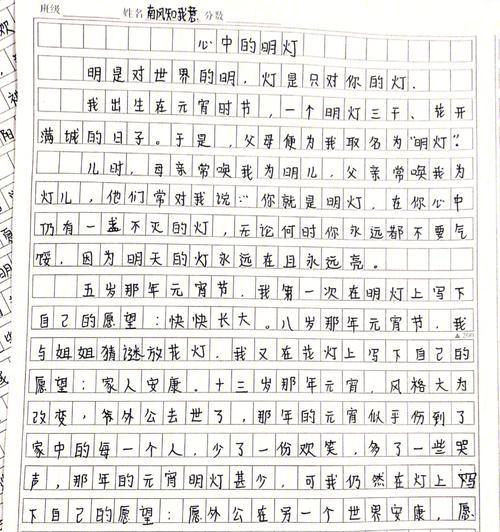 班级 姓名 南风知我意 分数
心中的明灯
明是对世界的明，灯是只对你的灯.
我出生在元宵时节，一个明灯三千、花开
满城的日子。于是，父母便为我取名为"明灯".
儿时，母亲常唤我为明儿，父亲常唤我为
灯儿，他们常对我说:"你就是明灯，在你心中
仍有一盏不灭的灯，无论何时你永远都不要气
馁，因为明天的灯永远在且永远亮。
五岁那年元宵节，我第一次在明灯上写下
自己的愿望：快快长大。八岁那年元宵节，我
与姐姐猜谜放花灯，我又在花灯上写下自己的
愿望：家人安康。十三岁那年元宵，风格大为
改变，爷外公去世了，那年的元宵似乎伤到了
家中的每一个人，少了一份欢笑，多了一些哭
声，那年的元宵明灯甚少，可我仍然在灯上写
下自己的愿望：愿外公在另一个世界安康，愿